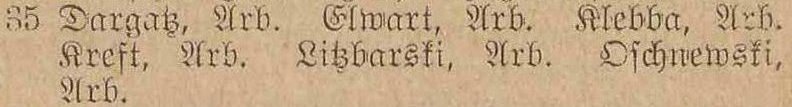 35 Dargatz, Arb. Elwart, Arb. Klebba, Arb.
Kreft, Arb. Litzbarski, Arb. Oschnewski,
Arb.